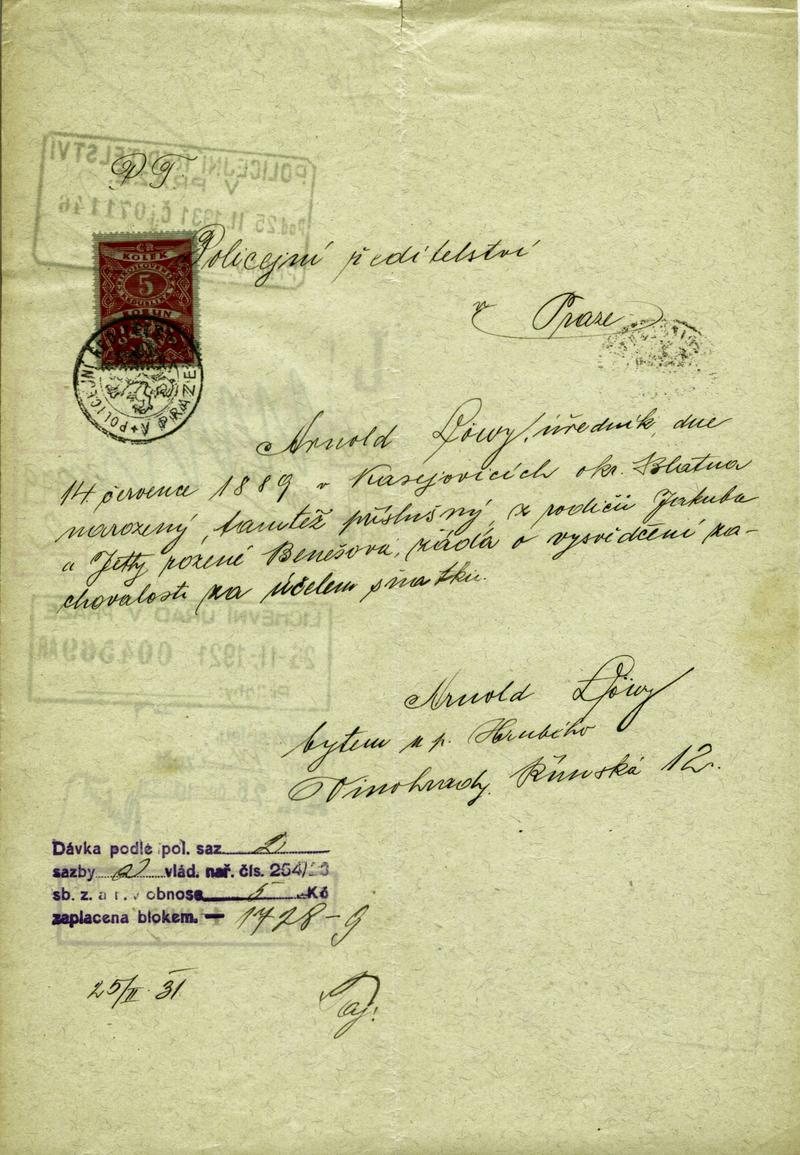 P. T.
Policejní ředitelství
v Praze
KOLEK
5
KORUN
POLICEJNÍ ŘEDITELSTVÍ V PRAZE
Arnold Löwy, úředník, dne
14 července 1889 v Kasejovicích okr. Blatna
narozený, tamtéž příslušný, z rodičů Jakuba
a Jetty rozené Benešová, žádá o vysvědčení za-
chovalosti za účelem sňatku.
Arnold Löwy
bytem u p. Hrubého
Vinohrady, Římská 12.
POLICEJNÍ ŘEDITELSTVÍ
V PRAZE
Pod. 25 II. 1931 č. j. 071146
LICHEVNÍ ÚŘAD V PRAZE
004569
Dávka podle pol. saz. 2
sazby a vlád. nař. čís. 254/
sb. z. a n. v obnose 5 Kč
zaplacena blokem. — 1728-9
25/II 31